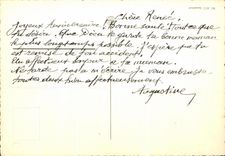 Chère Renée.
Joyeux Anniversaire. Bonne santé. Tout ce que
tu désires. Que Dieu te garde ta bonne maman
le plus longtemps possible. J'espère que tu
es remise de ton accident.
Un affectueux bonjour à ta maman.
Ne tarde pas à m'écrire. Je vous embrasse
toutes deux bien affectueusement
Augustine